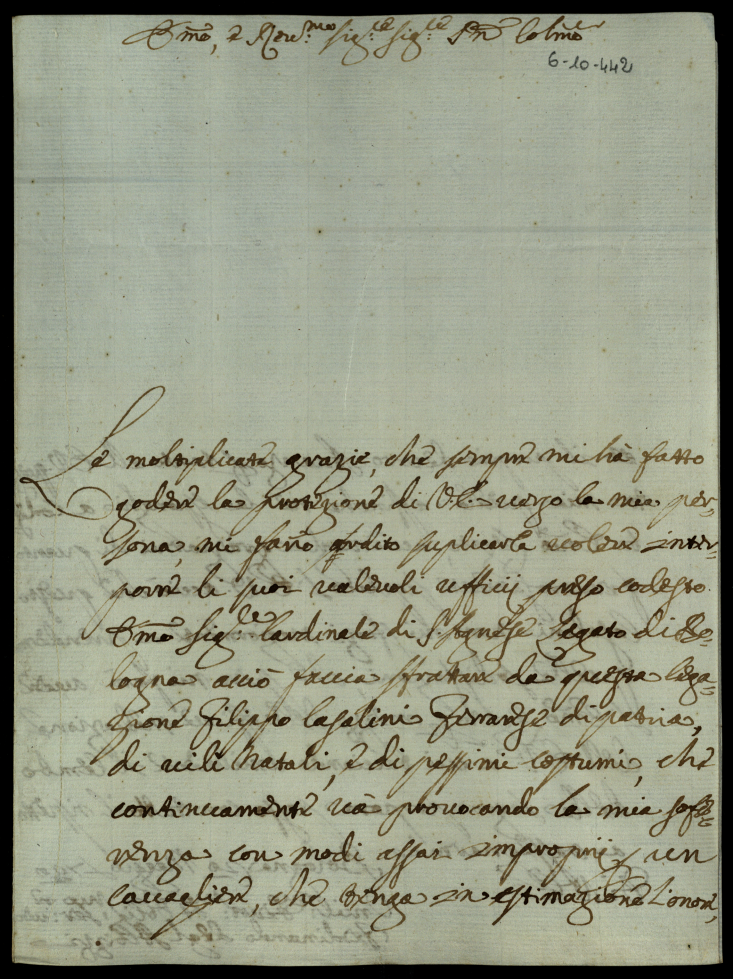 Em̃o, e Rev.mo Sig.re Sig.re P̃rõn Colm̃o
6-10-442
Le moltiplicate grazie, che sempre mi hà fatto
godere la protezione di V.E. verso la mia per=
sona, mi fanõ ardito suplicarla volere inter=
porre li suoi valevoli ufficij preso codesto
Em̃o Sig.re Cardinale di S. Agnese Legato di Bo=
logna acciò faccia sfrattare da questa lega=
zione Filippo Casalini Ferrarese di patria,
di vili Natali, e di pessimi costumi, che
continuamente và provocando la mia soffe=
renza con modi assai improprij p un
Cavagliere, che tenga in estimazione l'onore,